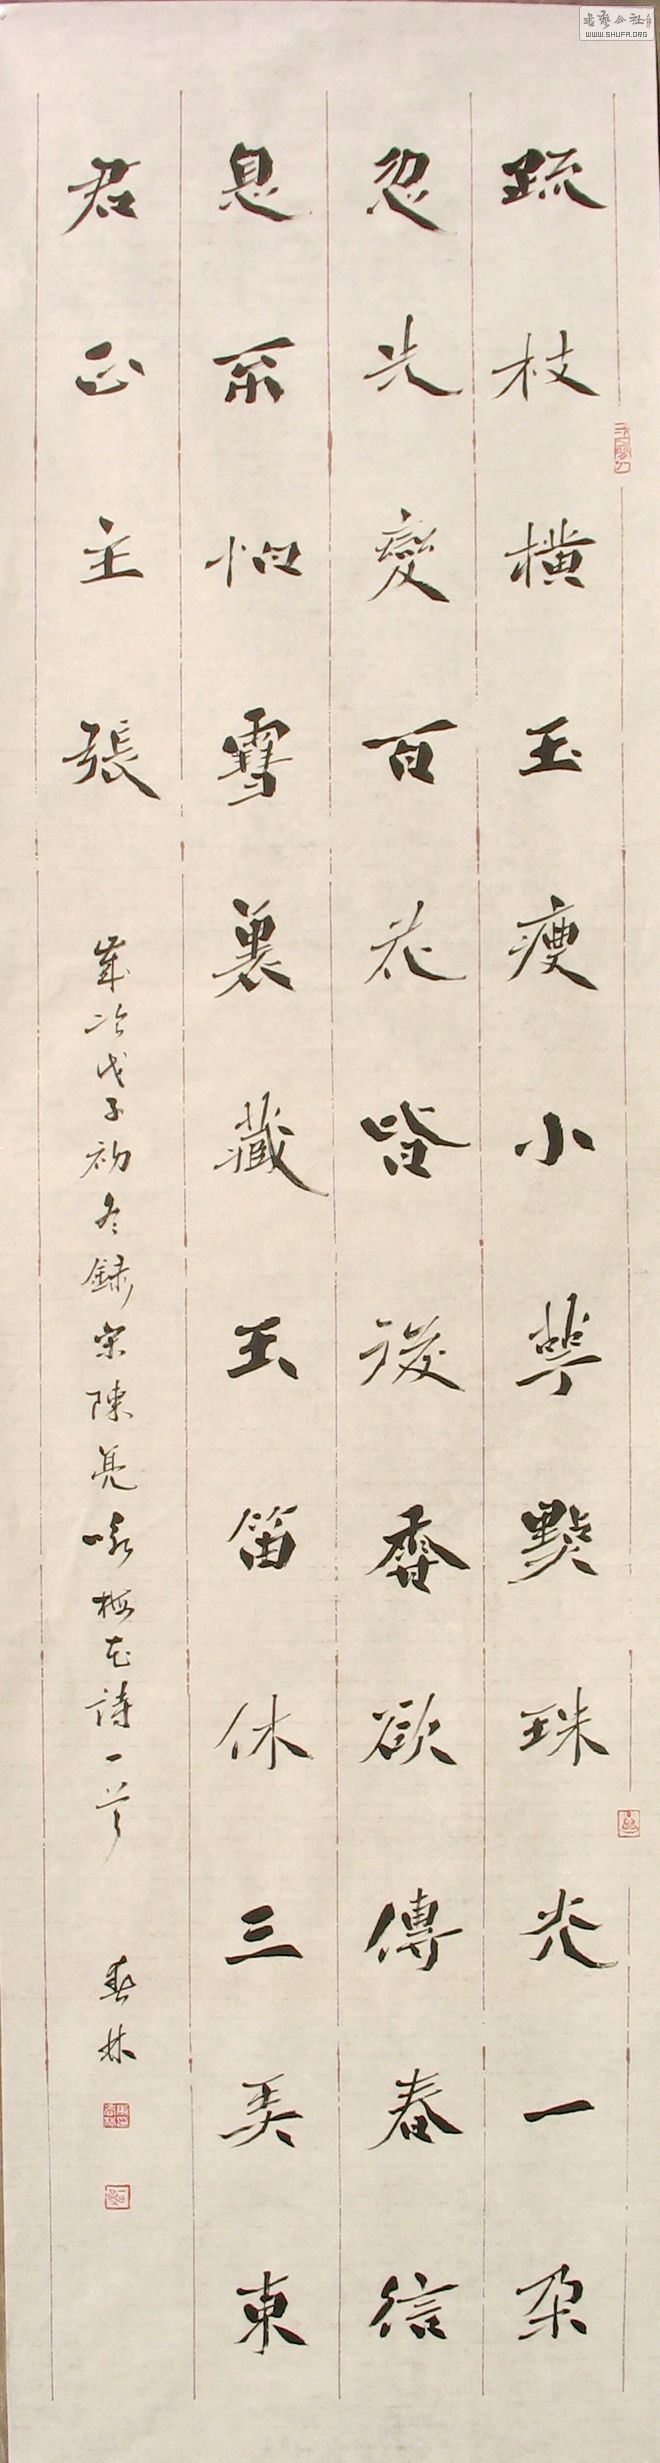 疏枝橫玉瘦小萼點珠光一朵
忽先變百花皆後香欲傳春信
息不怕雪裏藏玉笛休三弄東
君正主張
歲次戊子初冬錄宋陳亮咏梅花詩一首
春林
書藝公社
WWW.SHUFA.ORG